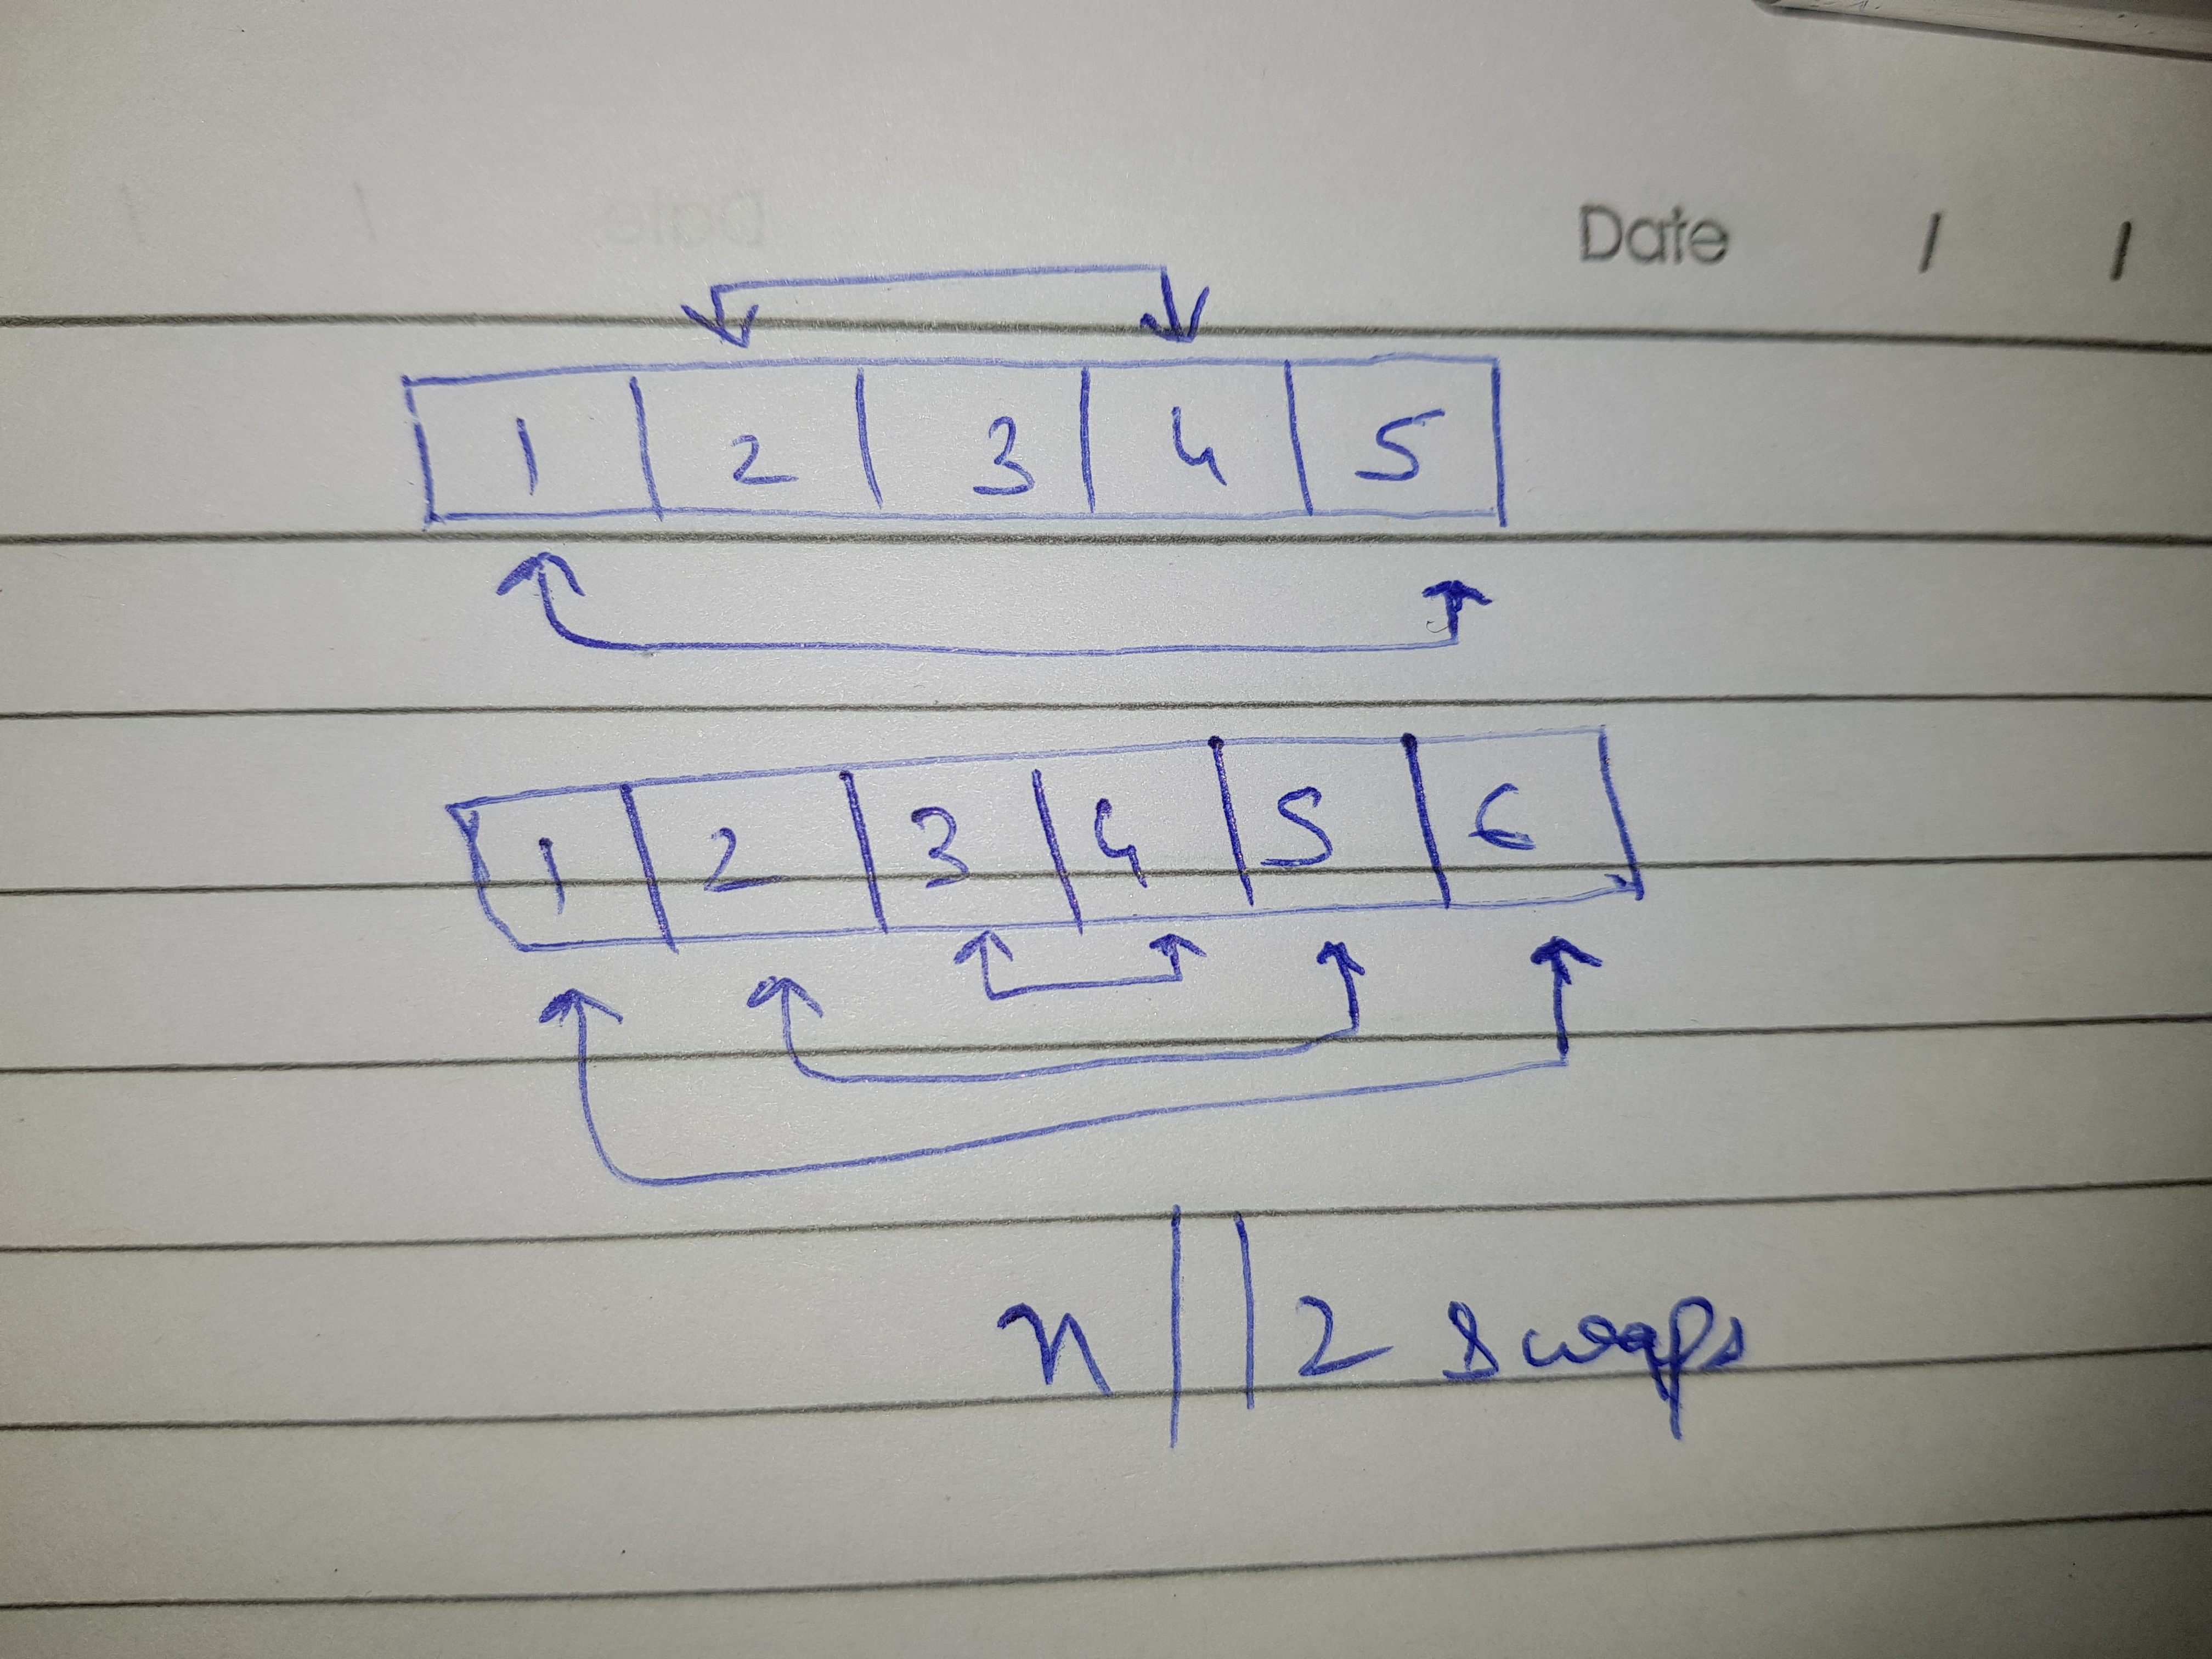 Date / /
1 2 3 4 5
1 2 3 4 5 6
n // 2 swaps